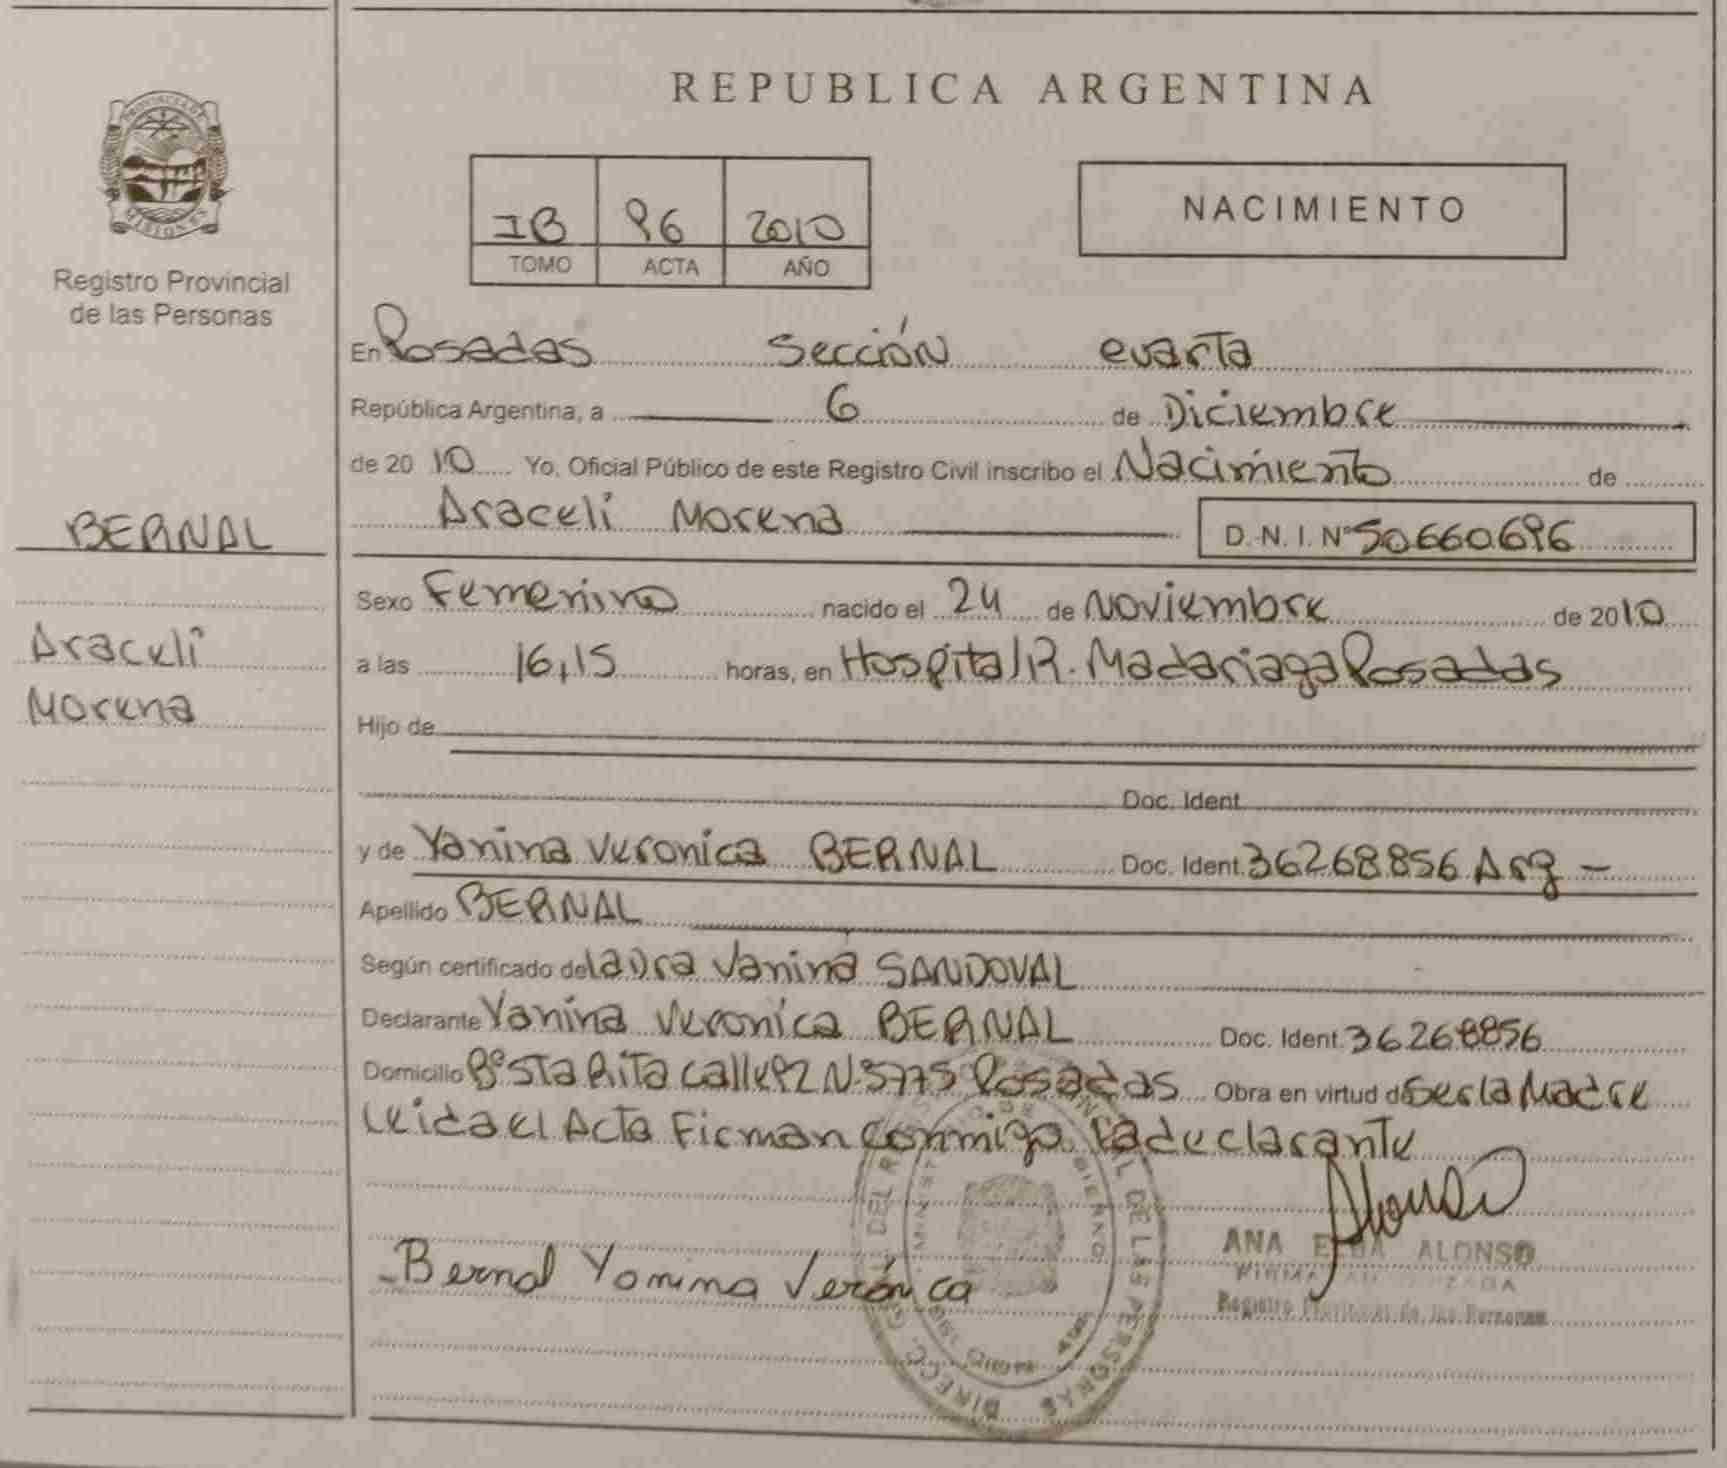 PROVINCIA DE
MISIONES
Registro Provincial
de las Personas
BERNAL
Araceli
Morena
REPUBLICA ARGENTINA
IB 96 2010
TOMO ACTA AÑO
NACIMIENTO
En Posadas Sección cuarta
República Argentina, a 6 de Diciembre
de 2010 Yo, Oficial Público de este Registro Civil inscribo el Nacimiento de
Araceli Morena D.N.I. Nº 50.660.696
Sexo Femenino nacido el 24 de Noviembre de 2010
a las 16,15 horas, en Hospital R. Madariaga Posadas
Hijo de
Doc. Ident.
y de Yanina Veronica BERNAL Doc. Ident. 36268856 Arg -
Apellido BERNAL
Según certificado de Laura Vanina SANDOVAL
Declarante Yanina Veronica BERNAL Doc. Ident. 36268856
Domicilio Bº Sta Rita calle 92 N. 5775 Posadas Obra en virtud de Ser la Madre
Leida el Acta Firman conmigo La declarante
Bernal Yanina Verónica
ANA ELBA ALONSO
FIRMA AUTORIZADA
Registro Provincial de las Personas